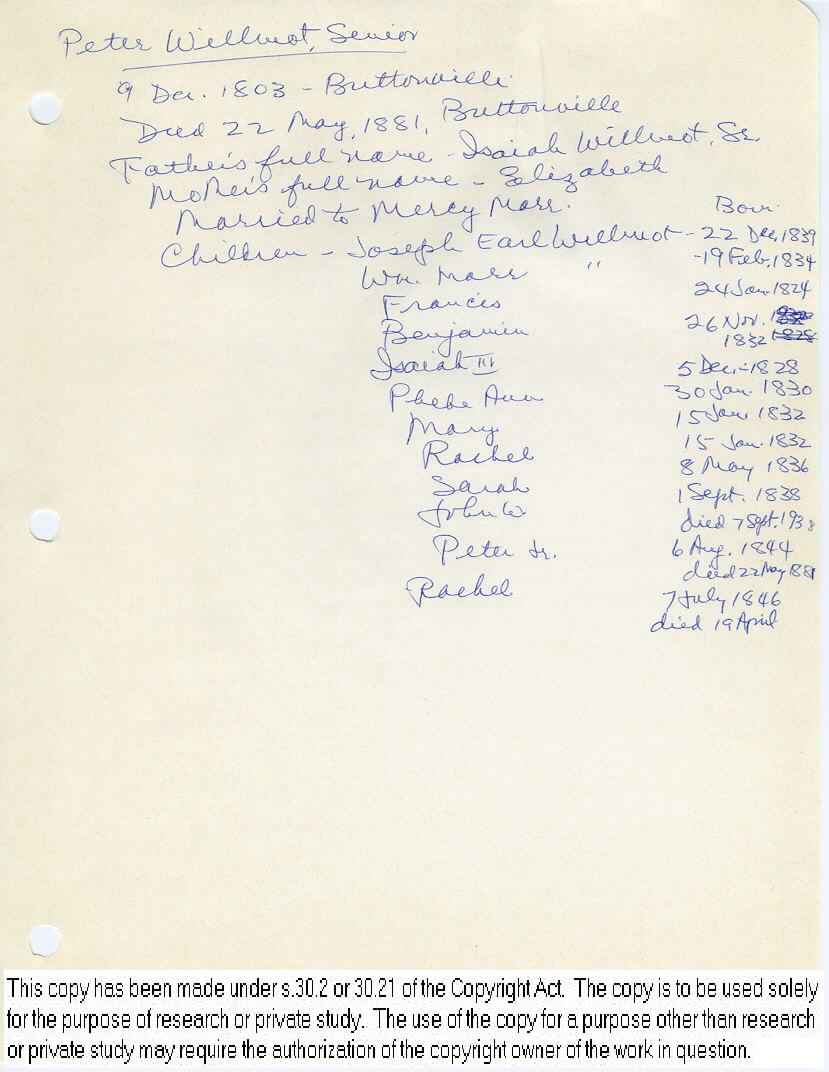 Peter Willmot, Senior
9 Dec. 1803 - Buttonville
Died 22 May, 1881, Buttonville
Father's full name - Isaiah Willmot, Sr.
Mother's full name - Elizabeth
Married to Mercy Marr.
Born
Children - Joseph Earl Willmot - 22 Dec, 1839
Wm. Marr " - 19 Feb, 1834
Francis 24 Jan. 1824
Benjamin 26 Nov.
1832
Isaiah III 5 Dec, - 1828
Phebe Ann 30 Jan. 1830
Mary 15 Jan. 1832
Rachel 15 Jan. 1832
Sarah 8 May 1836
John W. 1 Sept. 1838
died 7 Sept. 1938
Peter Jr. 6 Aug. 1844
died 22 May 1881
Rachel 7 July 1846
died 19 April
This copy has been made under s.30.2 or 30.21 of the Copyright Act. The copy is to be used solely
for the purpose of research or private study. The use of the copy for a purpose other than research
or private study may require the authorization of the copyright owner of the work in question.